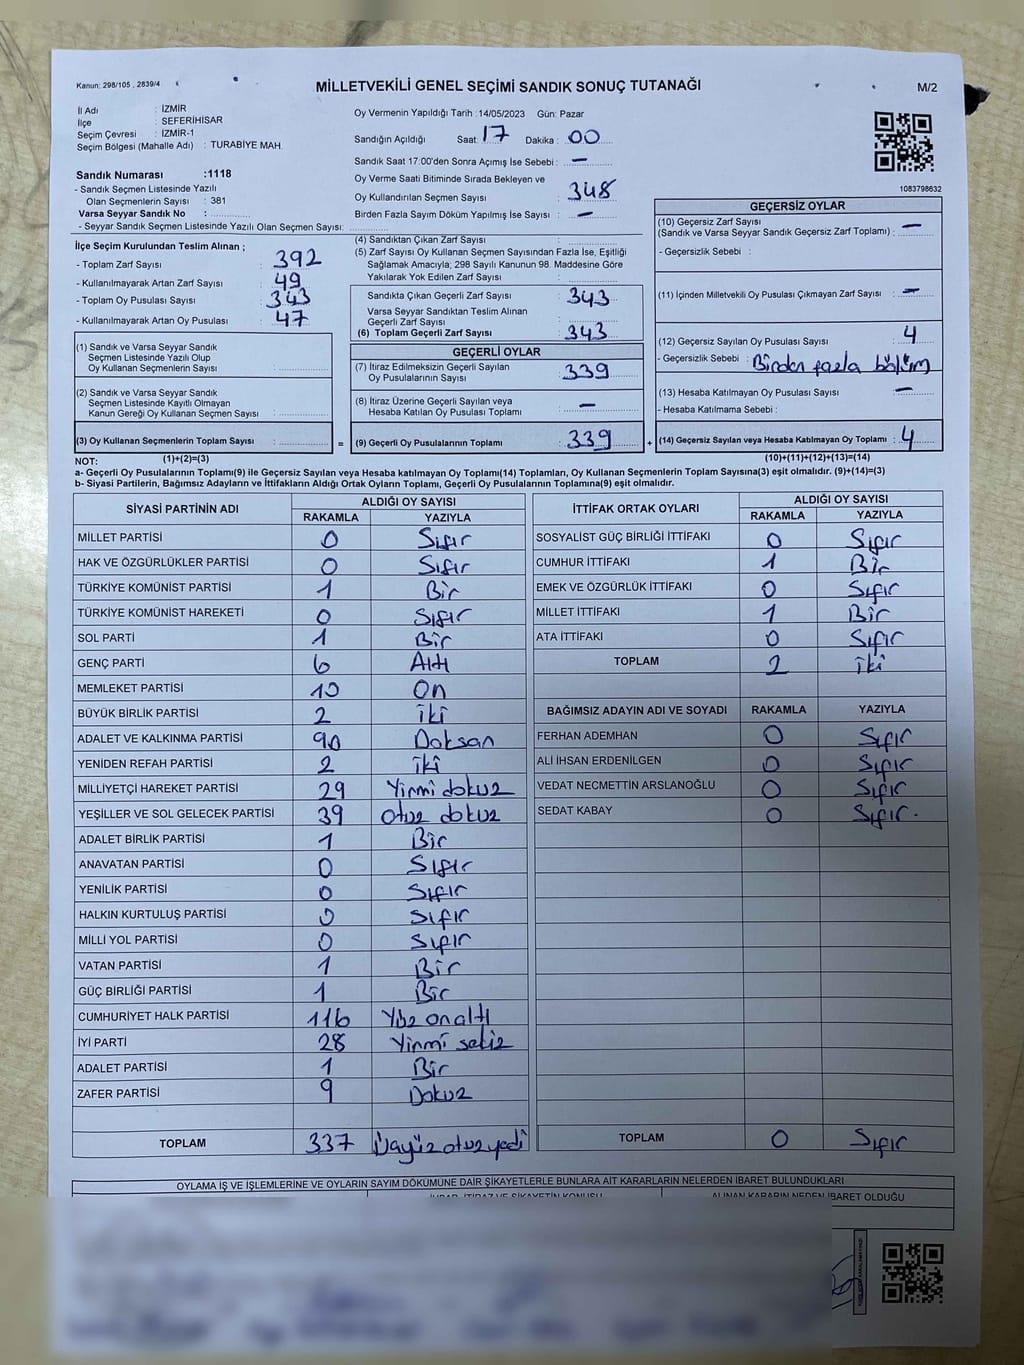 Kanun: 298/105 , 2839/4
MİLLETVEKİLİ GENEL SEÇİMİ SANDIK SONUÇ TUTANAĞI
M/2
İl Adı : İZMİR
İlçe : SEFERİHİSAR
Seçim Çevresi : İZMİR-1
Seçim Bölgesi (Mahalle Adı) : TURABİYE MAH.
Sandık Numarası :1118
- Sandık Seçmen Listesinde Yazılı
Olan Seçmenlerin Sayısı : 381
Varsa Seyyar Sandık No :
- Seyyar Sandık Seçmen Listesinde Yazılı Olan Seçmen Sayısı:
Oy Vermenin Yapıldığı Tarih :14/05/2023 Gün: Pazar
Sandığın Açıldığı Saat: 17 Dakika : 00
Sandık Saat 17:00'den Sonra Açımış İse Sebebi : —
Oy Verme Saati Bitiminde Sırada Bekleyen ve
Oy Kullandırılan Seçmen Sayısı : 348
Birden Fazla Sayım Döküm Yapılmış İse Sayısı : —
1083798632
İlçe Seçim Kurulundan Teslim Alınan ;
- Toplam Zarf Sayısı : 392
- Kullanılmayarak Artan Zarf Sayısı : 49
- Toplam Oy Pusulası Sayısı : 343
- Kullanılmayarak Artan Oy Pusulası : 47
(1) Sandık ve Varsa Seyyar Sandık
Seçmen Listesinde Yazılı Olup
Oy Kullanan Seçmenlerin Sayısı :
(2) Sandık ve Varsa Seyyar Sandık
Seçmen Listesinde Kayıtlı Olmayan
Kanun Gereği Oy Kullanan Seçmen Sayısı :
(3) Oy Kullanan Seçmenlerin Toplam Sayısı :
(4) Sandıktan Çıkan Zarf Sayısı :
(5) Zarf Sayısı Oy Kullanan Seçmen Sayısından Fazla İse, Eşitliği
Sağlamak Amacıyla; 298 Sayılı Kanunun 98. Maddesine Göre
Yakılarak Yok Edilen Zarf Sayısı :
Sandıkta Çıkan Geçerli Zarf Sayısı : 343
Varsa Seyyar Sandıktan Teslim Alınan
Geçerli Zarf Sayısı :
(6) Toplam Geçerli Zarf Sayısı : 343
GEÇERLİ OYLAR
(7) İtiraz Edilmeksizin Geçerli Sayılan
Oy Pusulalarının Sayısı : 339
(8) İtiraz Üzerine Geçerli Sayılan veya
Hesaba Katılan Oy Pusulası Toplamı : —
= (9) Geçerli Oy Pusulalarının Toplamı : 339 +
GEÇERSİZ OYLAR
(10) Geçersiz Zarf Sayısı
(Sandık ve Varsa Seyyar Sandık Geçersiz Zarf Toplamı) : —
- Geçersizlik Sebebi :
(11) İçinden Milletvekili Oy Pusulası Çıkmayan Zarf Sayısı : —
(12) Geçersiz Sayılan Oy Pusulası Sayısı : 4
- Geçersizlik Sebebi : Birden fazla bölüm
(13) Hesaba Katılmayan Oy Pusulası Sayısı : —
- Hesaba Katılmama Sebebi :
(14) Geçersiz Sayılan veya Hesaba Katılmayan Oy Toplamı : 4
NOT: (1)+(2)=(3) (10)+(11)+(12)+(13)=(14)
a- Geçerli Oy Pusulalarının Toplamı(9) ile Geçersiz Sayılan veya Hesaba katılmayan Oy Toplamı(14) Toplamları, Oy Kullanan Seçmenlerin Toplam Sayısına(3) eşit olmalıdır. (9)+(14)=(3)
b- Siyasi Partilerin, Bağımsız Adayların ve İttifakların Aldığı Ortak Oyların Toplamı, Geçerli Oy Pusulalarının Toplamına(9) eşit olmalıdır.
SİYASİ PARTİNİN ADI ALDIĞI OY SAYISI
RAKAMLA YAZIYLA
MİLLET PARTİSİ 0 Sıfır
HAK VE ÖZGÜRLÜKLER PARTİSİ 0 Sıfır
TÜRKİYE KOMÜNİST PARTİSİ 1 Bir
TÜRKİYE KOMÜNİST HAREKETİ 0 Sıfır
SOL PARTİ 1 Bir
GENÇ PARTİ 6 Altı
MEMLEKET PARTİSİ 10 On
BÜYÜK BİRLİK PARTİSİ 2 iki
ADALET VE KALKINMA PARTİSİ 90 Doksan
YENİDEN REFAH PARTİSİ 2 iki
MİLLİYETÇİ HAREKET PARTİSİ 29 Yirmi dokuz
YEŞİLLER VE SOL GELECEK PARTİSİ 39 otuz dokuz
ADALET BİRLİK PARTİSİ 1 Bir
ANAVATAN PARTİSİ 0 Sıfır
YENİLİK PARTİSİ 0 Sıfır
HALKIN KURTULUŞ PARTİSİ 0 Sıfır
MİLLİ YOL PARTİSİ 0 Sıfır
VATAN PARTİSİ 1 Bir
GÜÇ BİRLİĞİ PARTİSİ 1 Bir
CUMHURİYET HALK PARTİSİ 116 Yüz onaltı
İYİ PARTİ 28 Yirmi sekiz
ADALET PARTİSİ 1 Bir
ZAFER PARTİSİ 9 Dokuz
TOPLAM 337 Üçyüz otuzyedi
İTTİFAK ORTAK OYLARI ALDIĞI OY SAYISI
RAKAMLA YAZIYLA
SOSYALİST GÜÇ BİRLİĞİ İTTİFAKI 0 Sıfır
CUMHUR İTTİFAKI 1 Bir
EMEK VE ÖZGÜRLÜK İTTİFAKI 0 Sıfır
MİLLET İTTİFAKI 1 Bir
ATA İTTİFAKI 0 Sıfır
TOPLAM 2 iki
BAĞIMSIZ ADAYIN ADI VE SOYADI RAKAMLA YAZIYLA
FERHAN ADEMHAN 0 Sıfır
ALİ İHSAN ERDENİLGEN 0 Sıfır
VEDAT NECMETTİN ARSLANOĞLU 0 Sıfır
SEDAT KABAY 0 Sıfır.
TOPLAM 0 Sıfır
OYLAMA İŞ VE İŞLEMLERİNE VE OYLARIN SAYIM DÖKÜMÜNE DAİR ŞİKAYETLERLE BUNLARA AİT KARARLARIN NELERDEN İBARET BULUNDUKLARI
İHBAR, İTİRAZ VE ŞİKAYETİN KONUSU ALINAN KARARIN NEDEN İBARET OLDUĞU